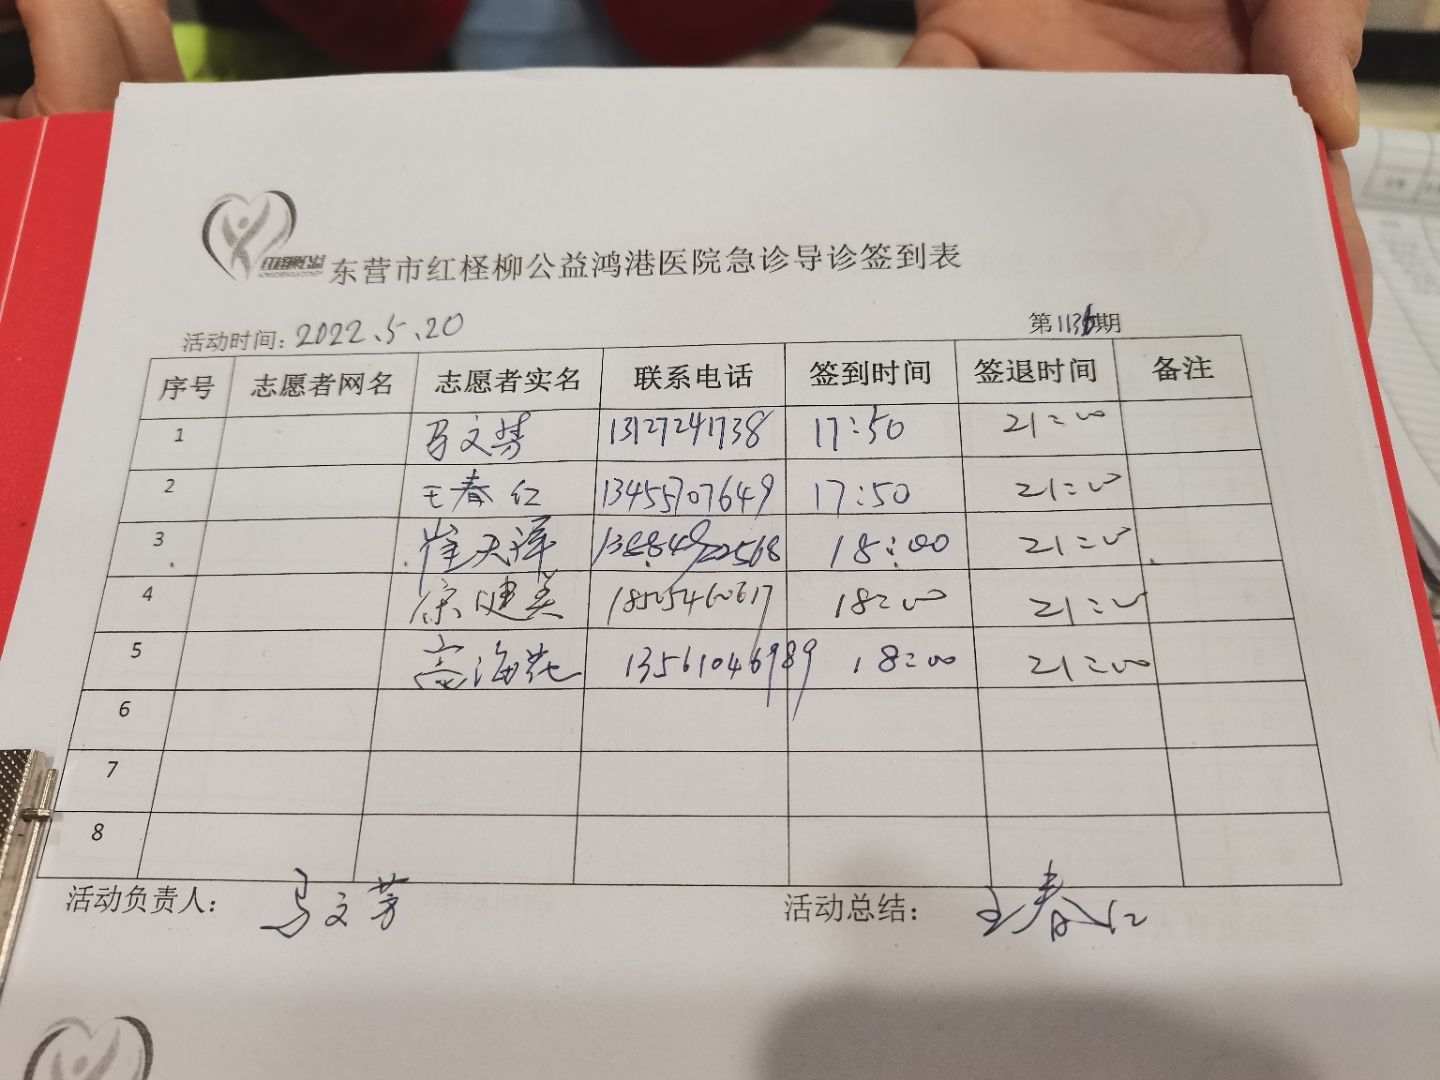 东营市红柽柳公益鸿港医院急诊导诊签到表
活动时间：2022.5.20 第1136期
序号 志愿者网名 志愿者实名 联系电话 签到时间 签退时间 备注
1 马文芳 13127241738 17:50 21:00
2 王春红 13455707649 17:50 21:00
3 崔天泽 18:00 21:00
4 徐健美 18525460617 18:00 21:00
5 高海花 13561046989 18:00 21:00
6
7
8
活动负责人：马文芳 活动总结：王春红